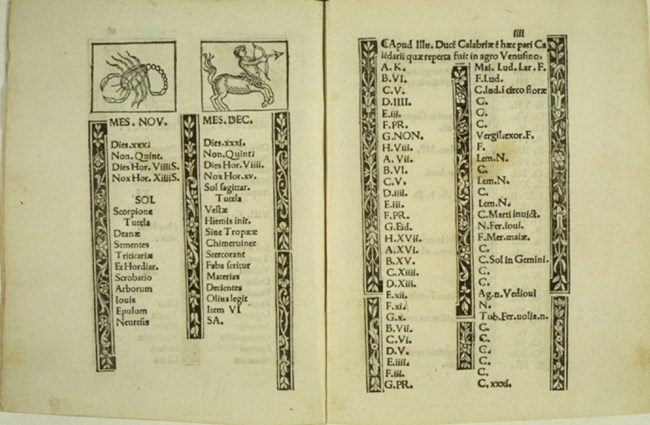 MES. NOV.
Dies.xxx.
Non. Quint.
Dies Hor. VIIIIS.
Nox Hor. XIIIIS.
SOL
Scorpione
Tutela
Deanæ
Sementes
Triticariæ
Et Hordiar.
Scrobatio
Arborum
Iouis
Epulum
Neuresis
MES. DEC.
Dies.xxxi.
Non. Quint.
Dies Hor. VIIII.
Nox Hor. xv.
Sol sagittar.
Tutela
Vestæ
Hiemis init.
Sine Tropææ
Chimeruinee
Stercorant
Faba seritur
Materias
Decientes
Oliua legit
Item VI
SA.
IIII
Apud Illu. Ducē Calabriæ ē hæc pari Ca
lēdarii quæ reperta fuit in agro Venusino.
A. K. Mai. Lud. Lar. F.
B. VI. F. Lud.
C. V. C. Ludi i circo floræ
D. IIII. C.
E. iii. C.
F. PR. C.
G. NON. Vergil. exor. F.
H. VIII. F.
A. VII. Lem. N.
B. VI. C.
C. V. Lem. N.
D. iiii. C.
E. iii. Lem. N.
F. PR. C. Marti inuict.
G. Eid. N. Fer. ioui.
H. XVII. F. Mer. maiæ.
A. XVI. C.
B. XV. C. Sol in Gemini.
C. XIIII. C.
D. XIII. C.
E. xii. Ag. n. Vedioui
F. xi. N.
G. x. Tub. Fer. uolis. n.
B. VII. C.
C. VI. C.
D. V. C.
E. iiii. C.
F. iii. C.
G. PR. C. xxxi.